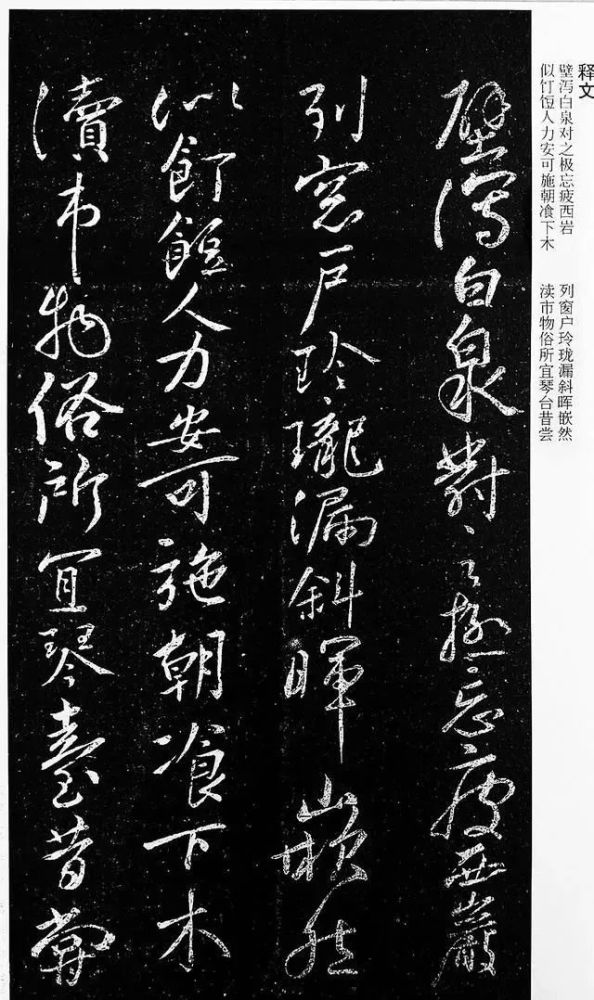 释文
壁泻白泉对之极忘疲西岩
列窗户玲珑漏斜晖嵌然
似饤饾人力安可施朝飡下木
渎市物俗所宜琴台昔尝
壁瀉白泉對之極忘疲西巖
列窓戶玲瓏漏斜暉嵌然
似飣餖人力安可施朝飡下木
瀆市物俗所宜琴臺昔嘗